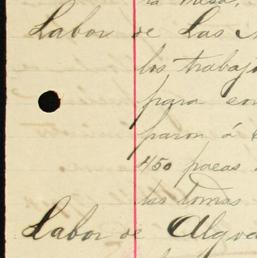 ra mesa,
Labor de Las
los trabajo
para con
paron á
450 pacas
las tomas
Labor de Algo